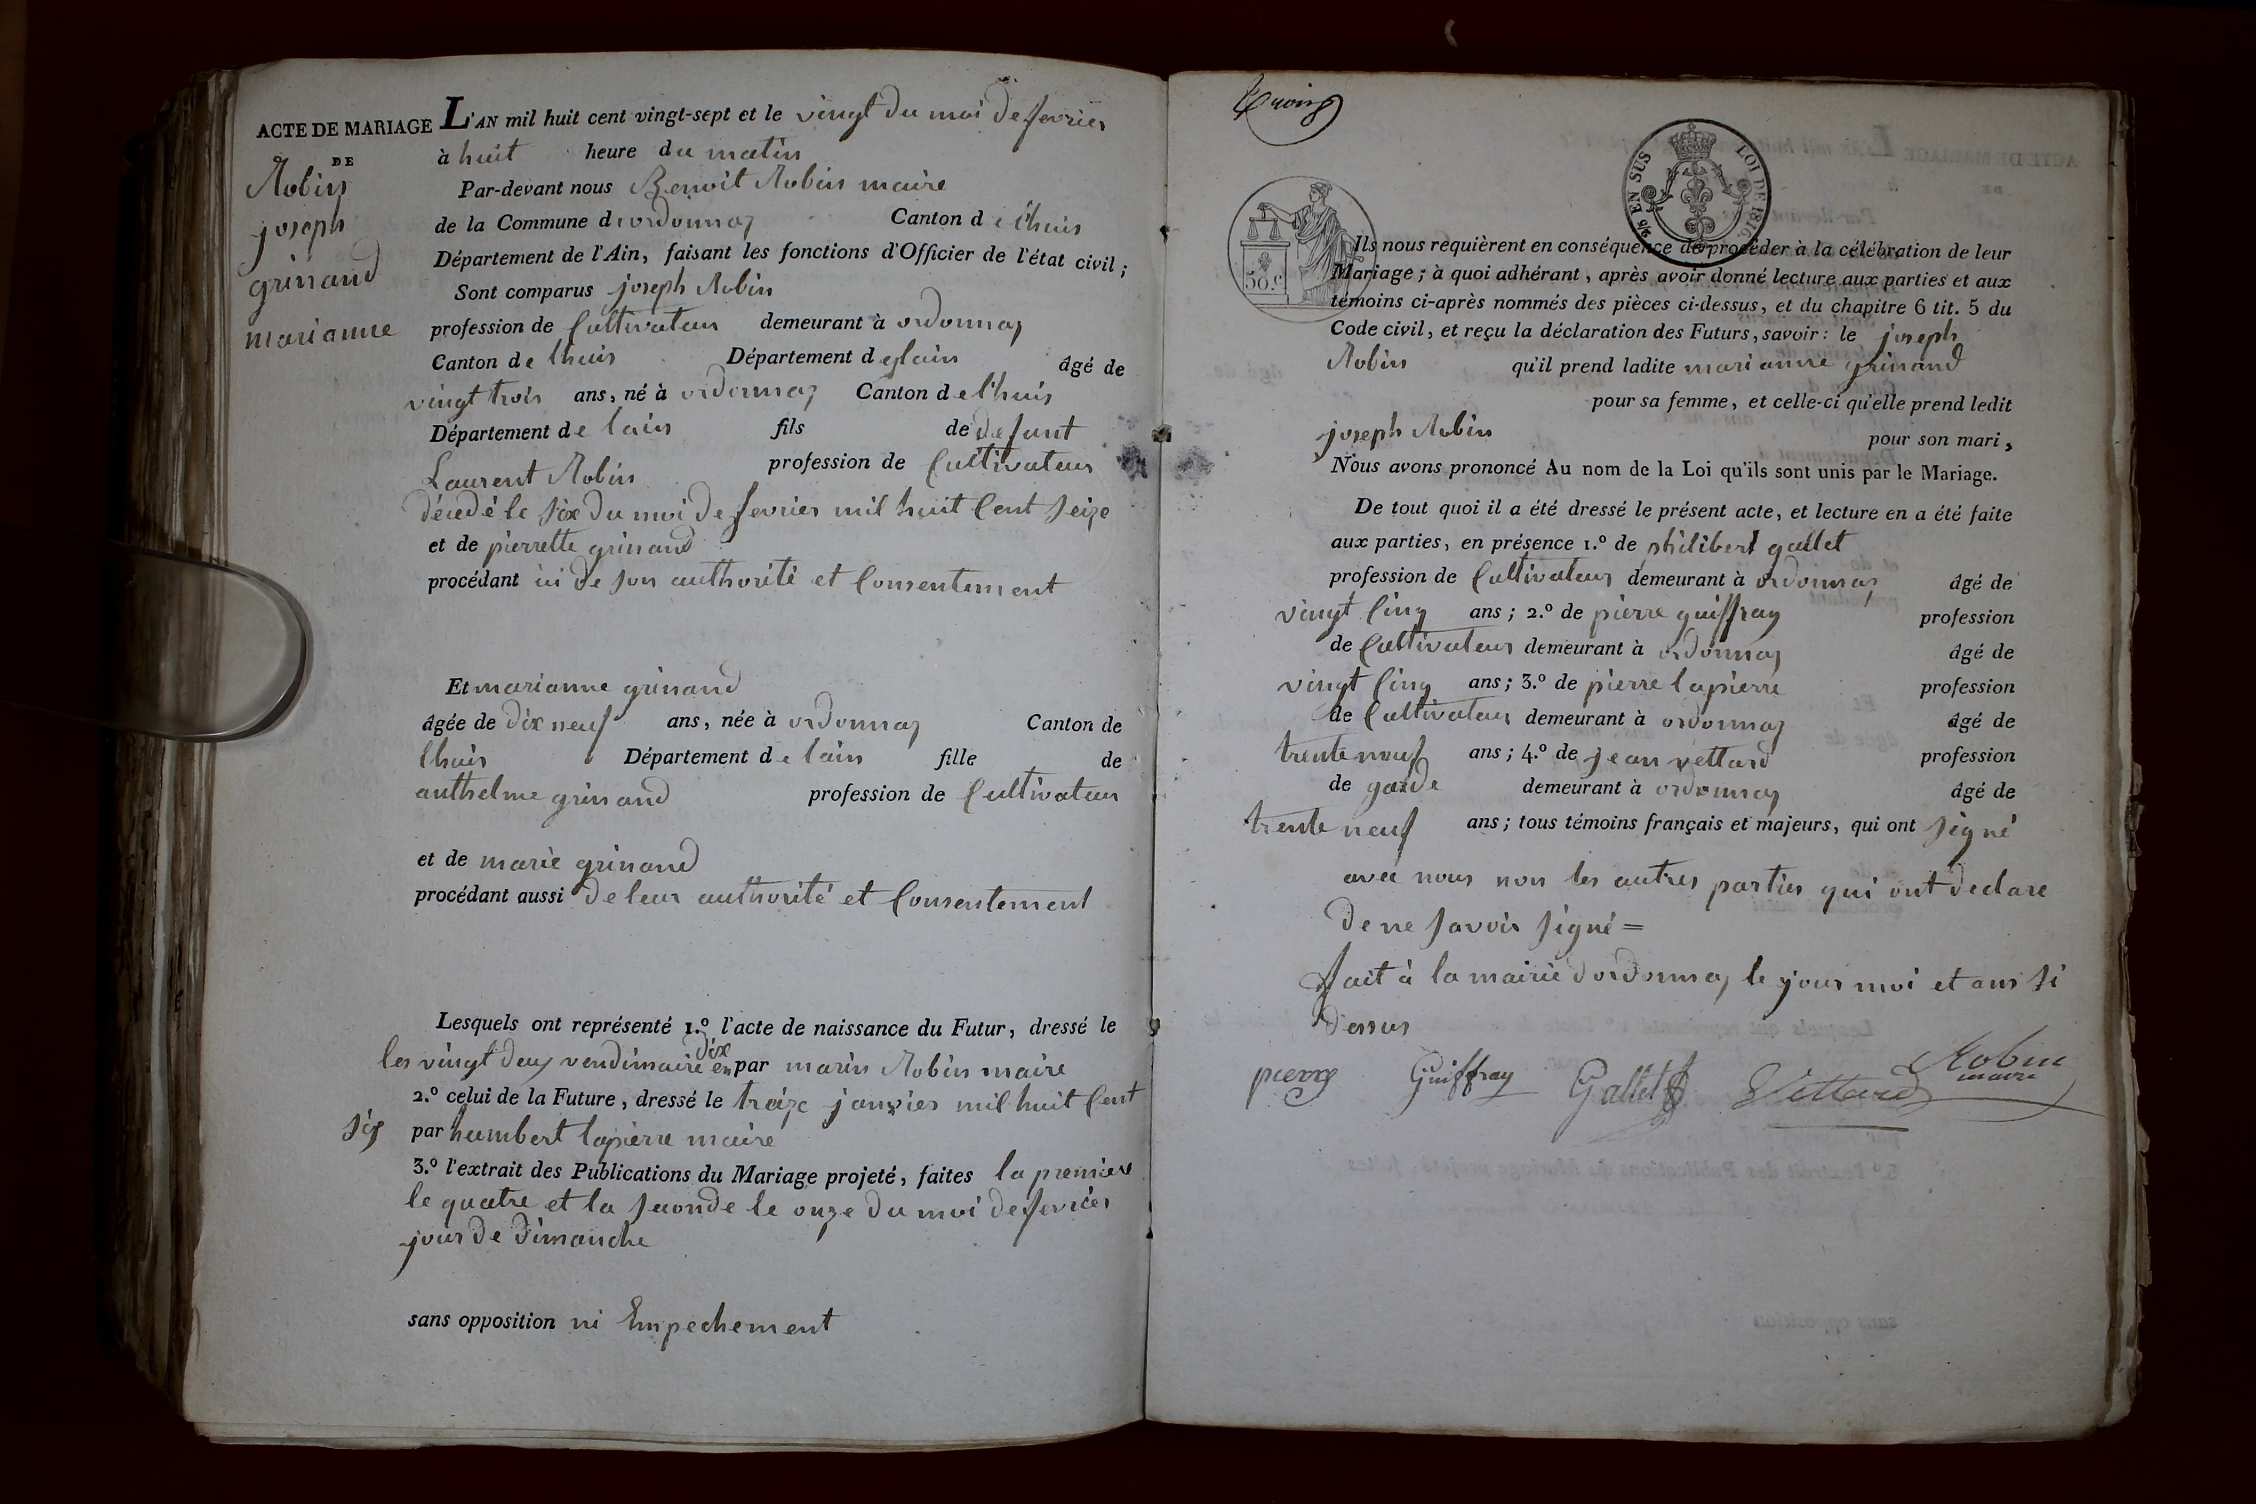 ACTE DE MARIAGE L'AN mil huit cent vingt-sept et le vingt du moi de fevrier
DE
à huit heure du matin
Robin
Par-devant nous Benoit Robin maire
joseph
de la Commune d ordonnaz Canton de lhuis
grinand
Département de l'Ain, faisant les fonctions d'Officier de l'état civil;
marianne
Sont comparus joseph Robin
profession de Cultivateur demeurant à ordonnaz
Canton de lhuis Département de lain âgé de
vingt trois ans, né à ordonnaz Canton de lhuis
Département de lain fils de defunt
Laurent Robin profession de Cultivateur
décedé le six du moi de fevrier mil huit Cent seize
et de pierrette grinand
procédant ici de son authorité et Consentement
Et marianne grinand
âgée de dix neuf ans, née à ordonnaz Canton de
lhuis Département de lain fille de
anthelme grinand profession de Cultivateur
et de marie grinand
procédant aussi de leur authorité et Consentement
Lesquels ont représenté 1.º l'acte de naissance du Futur, dressé le
les vingt deux vendimaire en dix par marin Robin maire
2.º celui de la Future, dressé le treize janvier mil huit Cent
six par humbert lapierre maire
3.º l'extrait des Publications du Mariage projeté, faites la premiere
le quatre et la seconde le onze du moi de fevrier
jour de dimanche
sans opposition ni Empechement
5/10 EN SUS LOI DE 1816.
50.c
Ils nous requièrent en conséquence de procéder à la célébration de leur
Mariage; à quoi adhérant, après avoir donné lecture aux parties et aux
témoins ci-après nommés des pièces ci-dessus, et du chapitre 6 tit. 5 du
Code civil, et reçu la déclaration des Futurs, savoir: le joseph
Robin qu'il prend ladite marianne grinand
pour sa femme, et celle-ci qu'elle prend ledit
joseph Robin pour son mari,
Nous avons prononcé Au nom de la Loi qu'ils sont unis par le Mariage.
De tout quoi il a été dressé le présent acte, et lecture en a été faite
aux parties, en présence 1.º de philibert gallet
profession de Cultivateur demeurant à ordonnaz âgé de
vingt Cinq ans; 2.º de pierre guiffray profession
de Cultivateur demeurant à ordonnaz âgé de
vingt Cinq ans; 3.º de pierre lapierre profession
de Cultivateur demeurant à ordonnaz âgé de
trente neuf ans; 4.º de jean vettard profession
de garde demeurant à ordonnaz âgé de
trente neuf ans; tous témoins français et majeurs, qui ont signé
avec nous non les autres parties qui ont declare
de ne savoir signé =
fait à la mairie dordonnaz le jour moi et ans si
dessus
pierre Guiffray Gallet Vettard Robin
maire